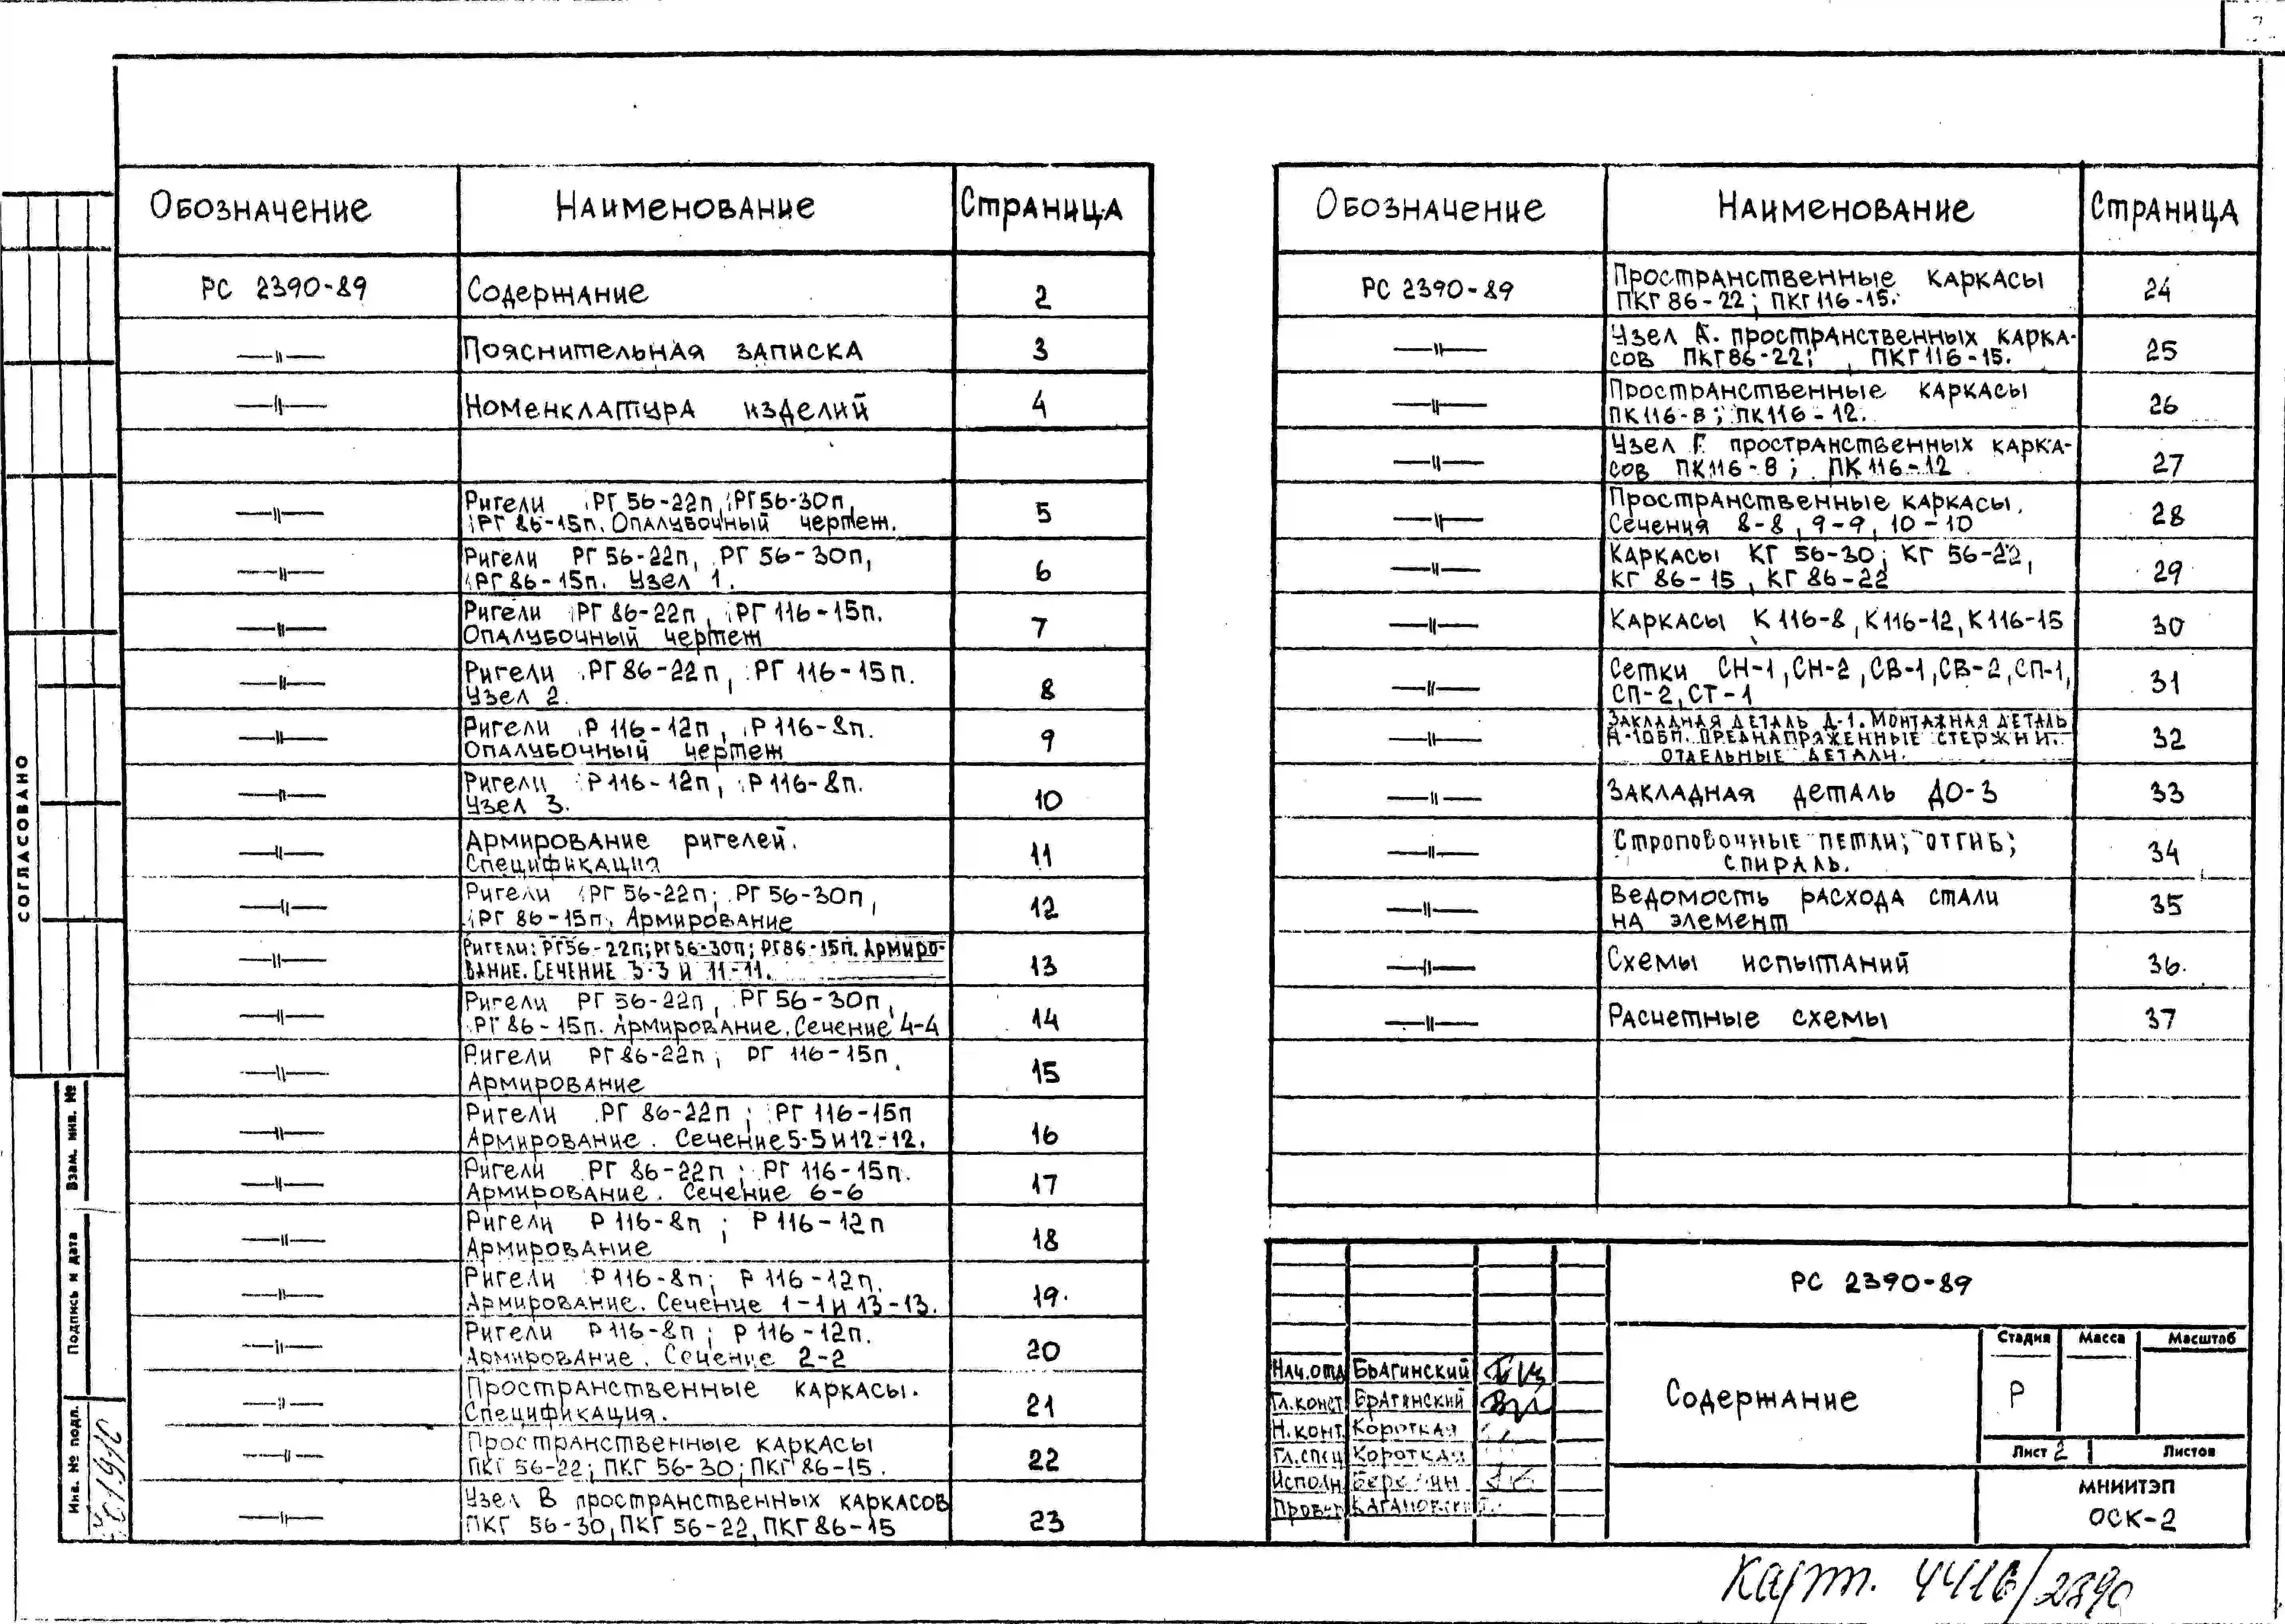 Обозначение Наименование Страница
РС 2390-89 Содержание 2
—"— Пояснительная записка 3
—"— Номенклатура изделий 4
—"— Ригели РГ 56-22п, РГ56-30п,
РГ 86-15п. Опалубочный чертеж. 5
—"— Ригели РГ 56-22п, РГ 56-30п,
РГ 86-15п. Узел 1. 6
—"— Ригели РГ 86-22п, РГ 116-15п.
Опалубочный чертеж 7
—"— Ригели РГ 86-22п, РГ 116-15п.
Узел 2. 8
—"— Ригели Р 116-12п, Р 116-8п.
Опалубочный чертеж 9
—"— Ригели Р 116-12п, Р 116-8п.
Узел 3. 10
—"— Армирование ригелей.
Спецификация 11
—"— Ригели РГ 56-22п; РГ 56-30п,
РГ 86-15п. Армирование 12
—"— Ригели: РГ56-22п; РГ56-30п; РГ86-15п. Армиро-
вание. Сечение 3-3 и 11-11. 13
—"— Ригели РГ 56-22п, РГ 56-30п,
РГ 86-15п. Армирование. Сечение 4-4 14
—"— Ригели РГ 86-22п; РГ 116-15п.
Армирование 15
—"— Ригели РГ 86-22п; РГ 116-15п
Армирование. Сечение 5-5 и 12-12. 16
—"— Ригели РГ 86-22п; РГ 116-15п.
Армирование. Сечение 6-6 17
—"— Ригели Р 116-8п; Р 116-12п
Армирование 18
—"— Ригели Р 116-8п; Р 116-12п.
Армирование. Сечение 1-1 и 13-13. 19.
—"— Ригели Р 116-8п; Р 116-12п.
Армирование. Сечение 2-2 20
—"— Пространственные каркасы.
Спецификация. 21
—"— Пространственные каркасы
ПКГ 56-22; ПКГ 56-30; ПКГ 86-15. 22
—"— Узел В пространственных каркасов
ПКГ 56-30, ПКГ 56-22, ПКГ 86-15 23
Обозначение Наименование Страница
РС 2390-89 Пространственные каркасы
ПКГ 86-22; ПКГ 116-15. 24
—"— Узел А. пространственных карка-
сов ПКГ86-22; ПКГ116-15. 25
—"— Пространственные каркасы
ПК116-8; ПК116-12. 26
—"— Узел Г пространственных карка-
сов ПК116-8; ПК116-12. 27
—"— Пространственные каркасы.
Сечения 8-8, 9-9, 10-10 28
—"— Каркасы КГ 56-30; КГ 56-22,
КГ 86-15, КГ 86-22 29
—"— Каркасы К 116-8, К116-12, К116-15 30
—"— Сетки СН-1, СН-2, СВ-1, СВ-2, СП-1,
СП-2, СТ-1 31
—"— Закладная деталь Д-1. Монтажная деталь
Д-10БП. Преднапряженные стержни.
Отдельные детали. 32
—"— Закладная деталь ДО-3 33
—"— Строповочные петли; отгиб;
спираль. 34
—"— Ведомость расхода стали
на элемент 35
—"— Схемы испытаний 36.
—"— Расчетные схемы 37
СОГЛАСОВАНО
Взам. инв. №
Подпись и дата
Инв. № подл.
РС 2390-89
Содержание
Стадия Масса Масштаб
Р
Лист 2 Листов
МНИИТЭП
ОСК-2
Нач.отд Брагинский
Гл.конст Брагинский
Н.конт Короткая
Гл.спец Короткая
Исполн.
Провер. Кагановский
Карт. 4416/2390